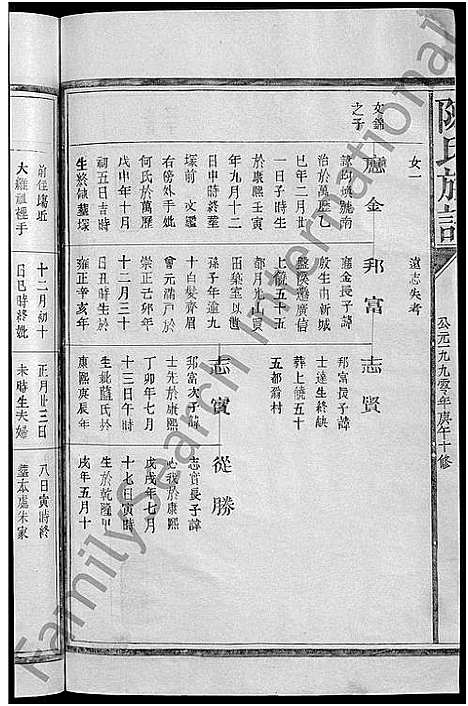 陳氏族譜
公元一九九零年庚午十修
女一
遠志失考
文錦
之子
應金
諱
號
治於萬歷乙
巳年二月廿
一日子時生
於康熙壬寅
年九月十二
日申時終葬
塚前
文鑑
右傍外手妣
何氏於萬歷
戊申年十月
初五日吉時
生終
葬塚
邦富
應金長子諱
啟生
南新城
盤
遷廣信
上饒五十五
都月光山貢
田築室以備
孫子年逾九
十白髮齊眉
曾元滿戶於
崇正己卯年
十二月三十
日丑時生於
雍正辛亥年
志賢
邦富長子諱
士達生終缺
葬上饒五十
五都嶺村
志賓
邦富次子諱
士先於康熙
丁卯年七月
十三日午時
生
藍氏於
康熙庚辰年
從勝
志賓長子諱
必我於康熙
戊戌年七月
十七日寅時
生於乾隆甲
戌年五月十
前住
近
大羅
裡手
十二月初十
日巳時終妣
正月廿三日
未時生夫婦
八日寅時終
葬本處朱家
FamilySearch International